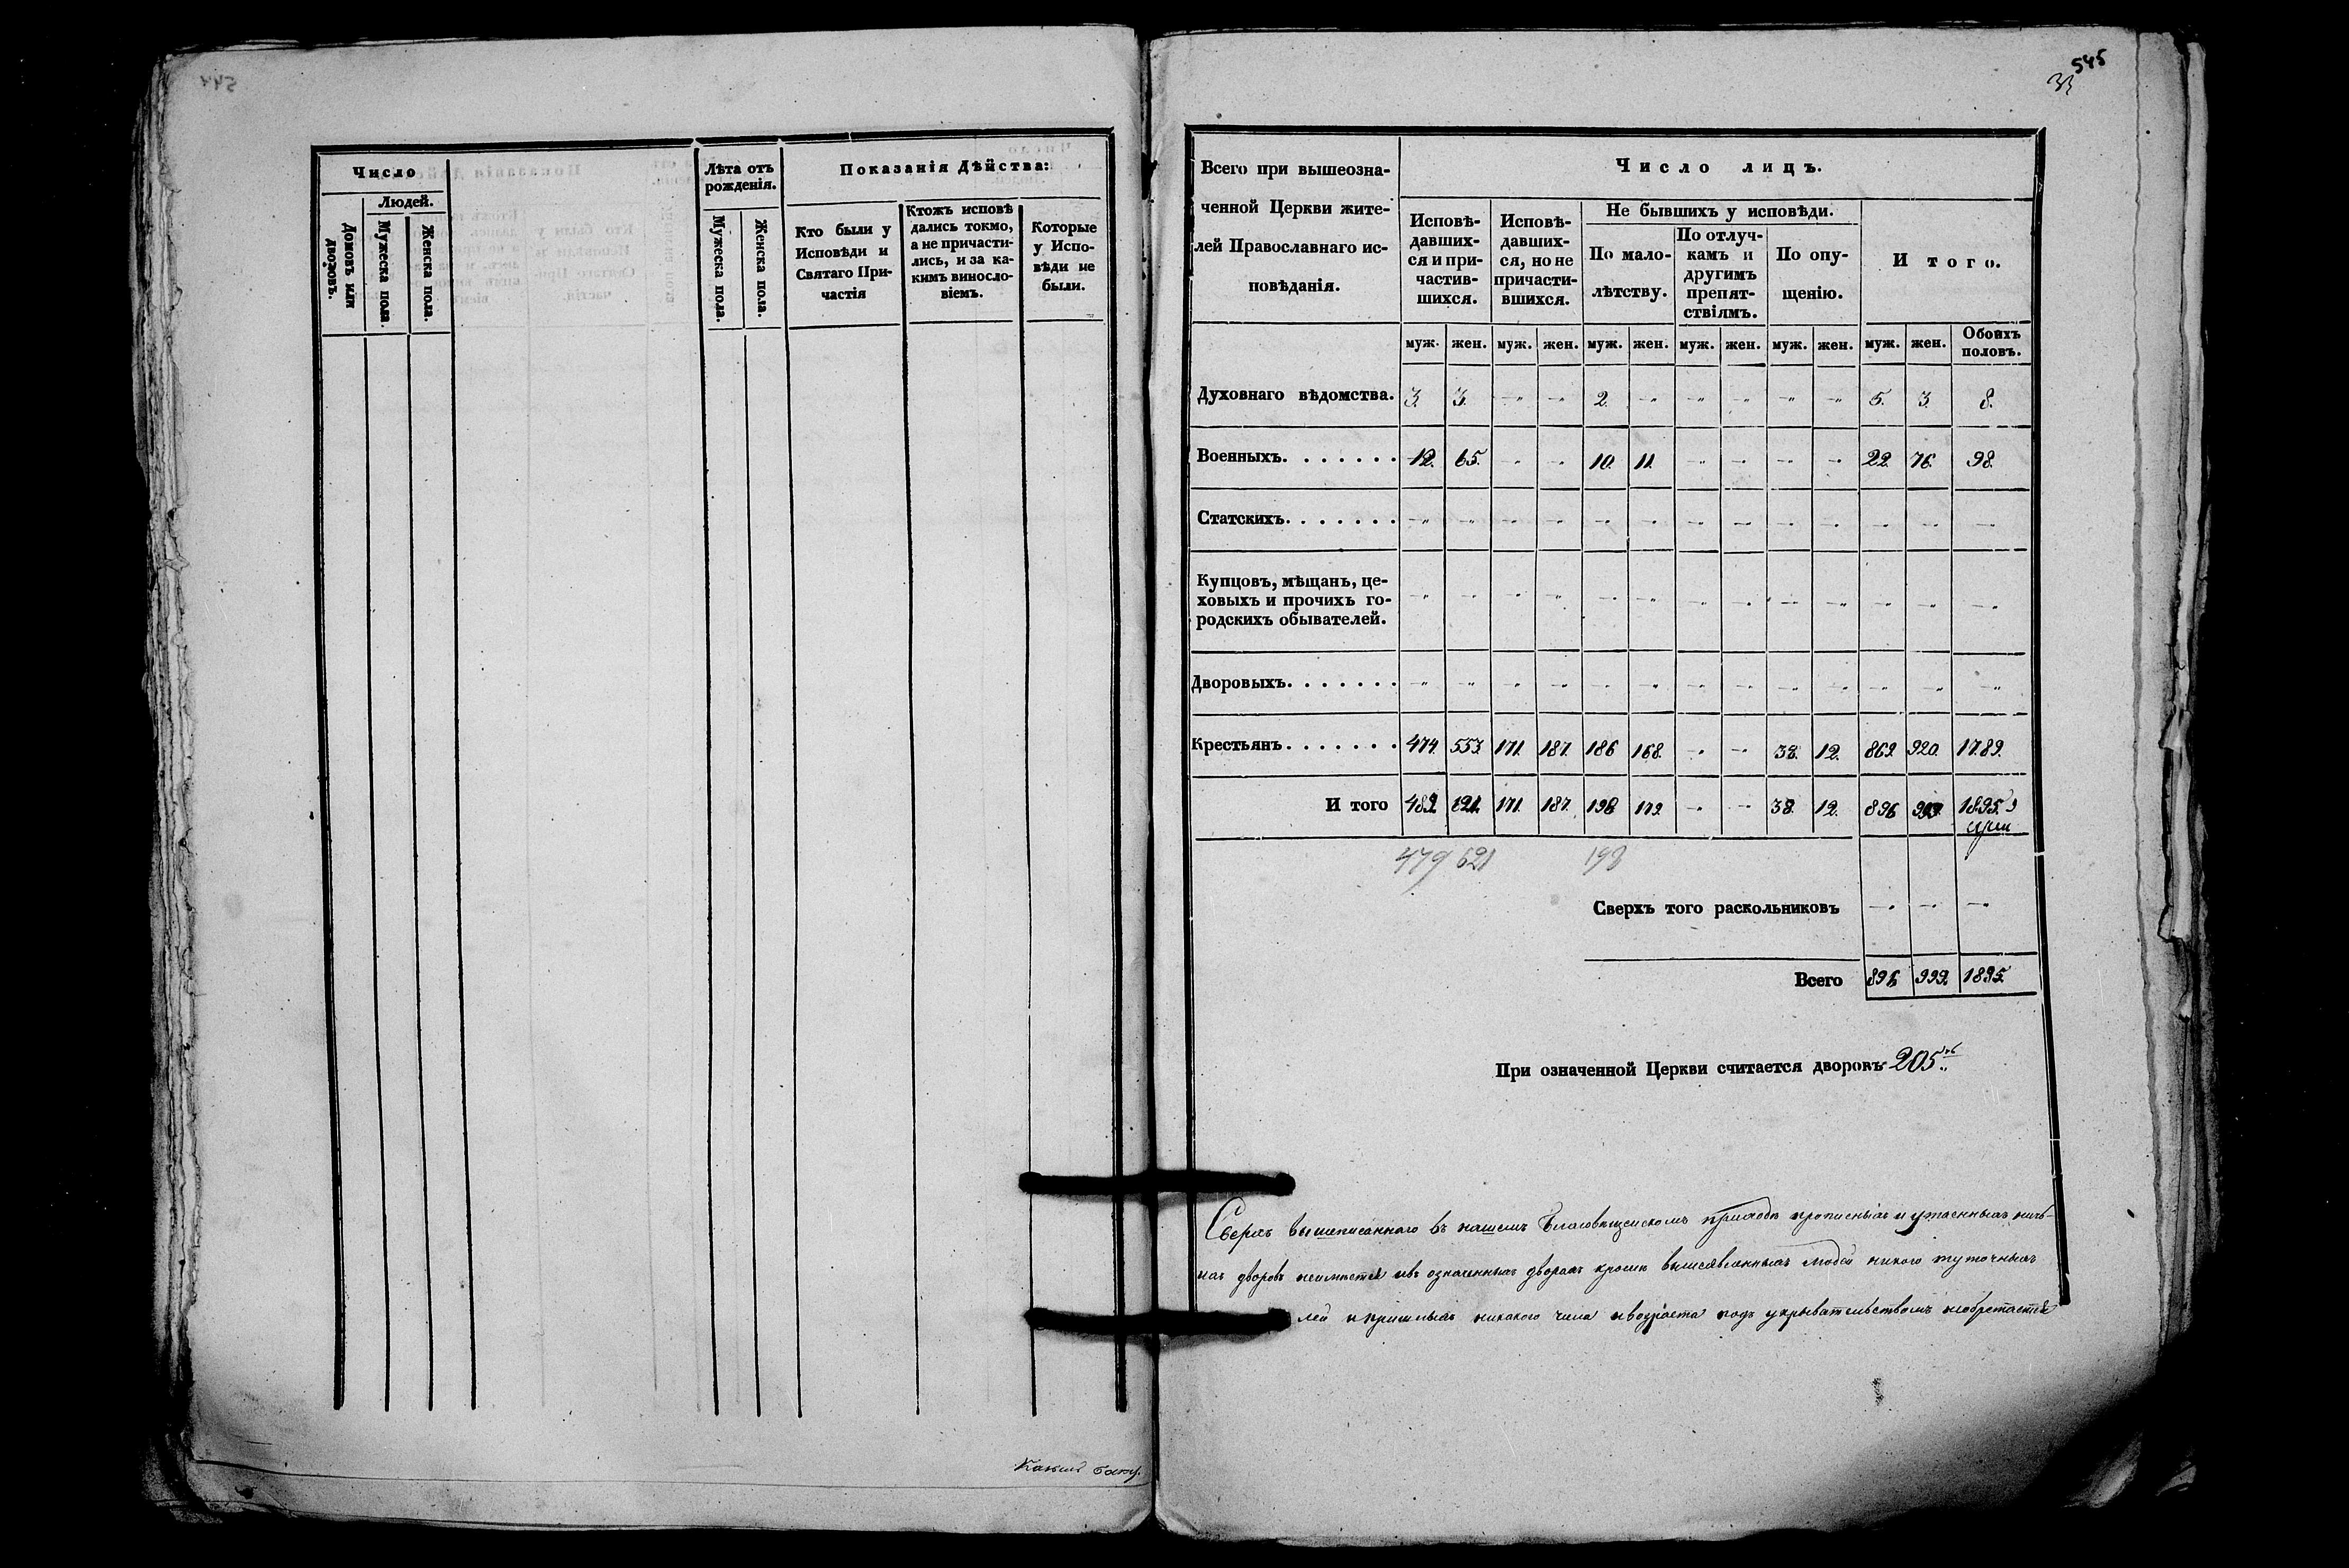 544
Число
Людей.
Домовъ или дворовъ.
Мужеска пола.
Женска пола.
Лѣта отъ
рожденія.
Мужеска пола.
Женска пола.
Показанія Дѣйства:
Кто были у
Исповѣди и
Святаго При-
частія
Ктожъ исповѣ
дались токмо,
а не причасти-
лись, и за ка-
кимъ винослo-
віемъ.
Которые
у Испо-
вѣди не
были.
545
Всего при вышеозна-
ченной Церкви жите-
лей Православнаго ис-
повѣданія.
Число лицъ.
Исповѣ-
давших-
ся и при-
частив-
шихся.
Исповѣ-
давших-
ся, но не
причасти-
вшихся.
Не бывшихъ у исповѣди.
По мало-
лѣтству.
По отлуч-
камъ и
другимъ
препят-
ствіямъ.
По опу-
щенію.
Итого.
муж. жен. муж. жен. муж. жен. муж. жен. муж. жен. муж. жен. Обоихъ половъ.
Духовнаго вѣдомства. 3. 3. -„ -„ 2. -„ -„ -„ -„ -„ 5. 3. 8.
Военныхъ. . . . . . . 12. 65. -„ -„ 10. 11. -„ -„ -„ -„ 22. 76. 98.
Статскихъ. . . . . . . -„ -„ -„ -„ -„ -„ -„ -„ -„ -„ -„ -„ -„
Купцовъ, мѣщанъ, це-
ховыхъ и прочихъ го-
родскихъ обывателей. -„ -„ -„ -„ -„ -„ -„ -„ -„ -„ -„ -„ -„
Дворовыхъ. . . . . . . -„ -„ -„ -„ -„ -„ -„ -„ -„ -„ -„ -„ -„
Крестьянъ. . . . . . . 474. 553. 171. 187. 186 168. -„ -„ 38. 12. 869. 920. 1789.
И того 489. 621. 171. 187. 198 179. -„ -„ 38. 12. 896 999. 1895.
479 621 198
Сверхъ того раскольниковъ -„ -„ -„
Всего 896 999. 1895.
При означенной Церкви считается дворовъ 205
Сверхъ вышеписаннаго въ нашемъ Благовѣщенскомъ приходѣ прописныхъ и утаенныхъ
дворовъ неимѣется ивъ означенныхъ дворахъ кромѣ людей никого
лей и пришлыхъ никакого чина ивозраста подъ укрывательствомъ необретается